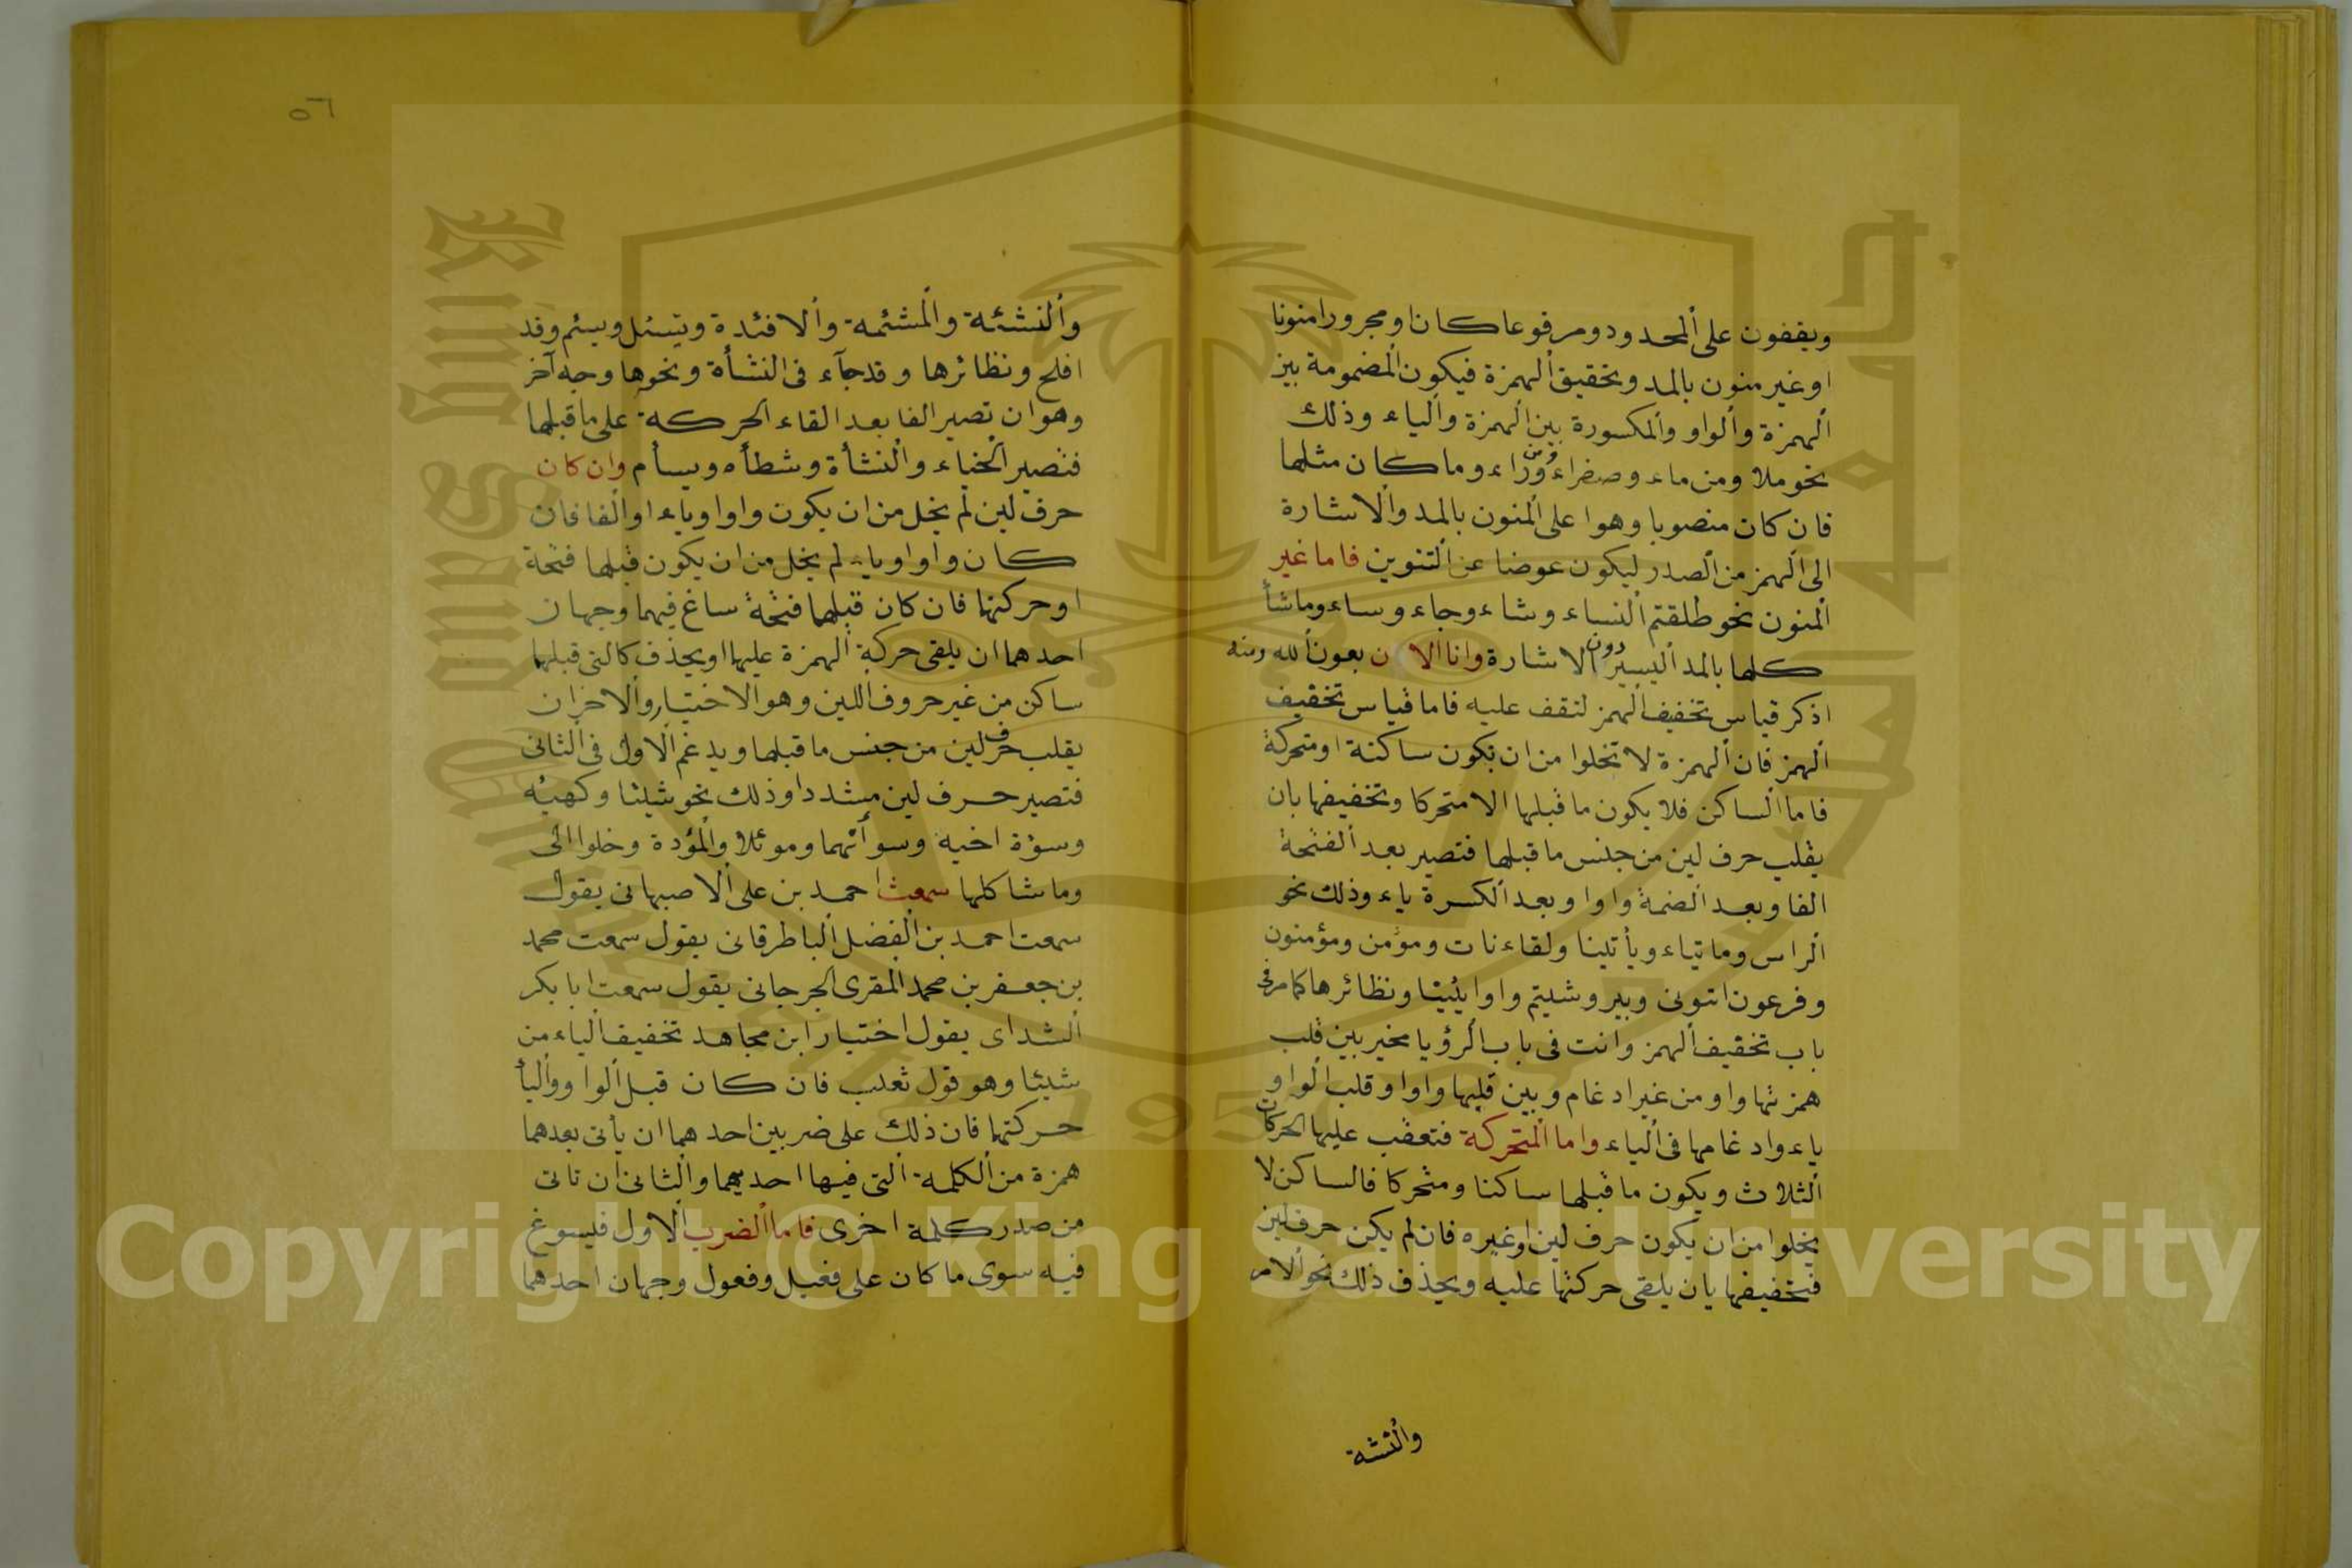 ويقفون على ألمحدود ومرفوعا كان او مجرورا منونا
او غير منون بالمد وتحقيق ألهمزة فيكون ألمضمومة بين
ألهمزة وألواو وألمكسورة بين ألهمزة وألياء وذلك
نحو ملا ومن ماء وصفراء ومن وراء وما كان مثلها
فان كان منصوبا وهوا على ألمنون بالمد وألاشارة
الى ألهمز من ألصدر ليكون عوضا عن ألتنوين فاما غير
ألمنون نحو طلقتم ألنساء وشاء وجاء وساء وماشأ
كلها بالمد أليسير دون ألاشارة وانا الان بعون ألله ومنه
اذكر قياس تخفيف ألهمز لتقف عليه فاما قياس تخفيف
ألهمز فان ألهمزة لا تخلوا من ان تكون ساكنة او متحركة
فاما ألساكن فلا يكون ما قبلها الا متحركا وتخفيفها بان
يقلب حرف لين من جنس ما قبلها فتصير بعد ألفتحة
الفا وبعد ألضمة واوا وبعد ألكسرة ياء وذلك نحو
ألراس وما تياء ويأتينا ولقاءنات ومؤمن ومؤمنون
وفرعون ائتونى وبير وشيتم واوايئيتا ونظائرها كما مر فى
باب تخفيف ألهمز وانت فى باب ألرؤيا مخير بين قلب
همزتها واو من غير ادغام وبين قلبها واوا وقلب ألواو
ياء وادغامها فى ألياء واما ألمتحركة فتعقب عليها الحركات
ألثلاث ويكون ما قبلها ساكنا ومتحركا فالساكن لا
يخلوا من ان يكون حرف لين او غيره فان لم يكن حرف لين
فتخفيفها بان يلقى حركتها عليه ويحذف ذلك نحو ألامر
والنشئة
٥٦
وألنشئة وألمشئمة وألافئدة ويسئل ويسئم وقد
افلح ونظائرها وقد جآء فى النشأة ونحوها وجه آخر
وهو ان تصير الفا بعد القاء الحركة على ما قبلها
فتصير الخباء وألنشأة وشطأه ويسأم وان كان
حرف لين لم يخل من ان يكون واوا وياء او ألفا فان
كان واو او ياء لم يخل من ان يكون قبلها فتحة
او حركتها فان كان قبلها فتحة ساغ فيهما وجهان
احدهما ان يلقى حركة ألهمزة عليها او يحذف كالتى قبلها
ساكن من غير حروف أللين وهو الاختيار وألاخران
يقلب حرف لين من جنس ما قبلها ويدغم ألاول فى ألثانى
فتصير حرف لين مشددا وذلك نحو شيئا وكهيئه
وسؤة اخيه وسوأتهما وموئلا وألمؤدة وخلوا الى
وما شاكلها سمعت احمد بن على ألاصبهانى يقول
سمعت احمد بن ألفضل ألباطرقانى يقول سمعت محمد
بن جعفر بن محمد المقرى الجرجانى يقول سمعت ابا بكر
ألشداى يقول اختيار ابن مجاهد تخفيف ألياء من
شيئا وهو قول ثعلب فان كان قبل ألواو وأليأ
حركتها فان ذلك على ضربين احدهما ان يأتى بعدهما
همزة من ألكلمة ألتى فيها احديهما وألثانى ان تاتى
من صدر كلمة اخرى فاما ألضرب ألاول فيسوغ
فيه سوى ما كان على فعيل وفعول وجهان احدهما
Copyright © King Saud University